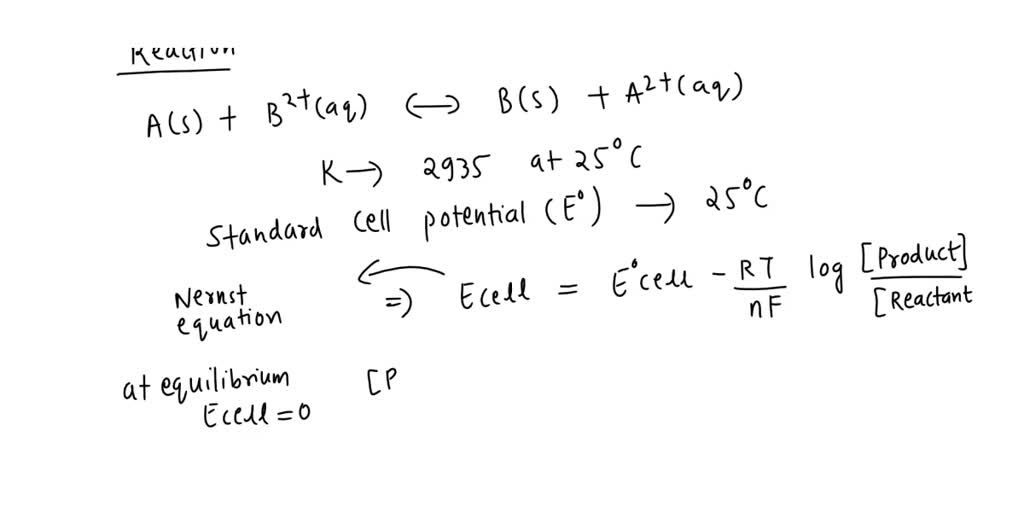 Reaction
A(s) + B²⁺(aq) ⟷ B(s) + A²⁺(aq)
K → 2935 at 25°C
Standard cell potential (E°) → 25°C
Nernst equation ⇒ Ecell = E°cell - RT/nF log [Product]/[Reactant
at equilibrium [P
Ecell = 0